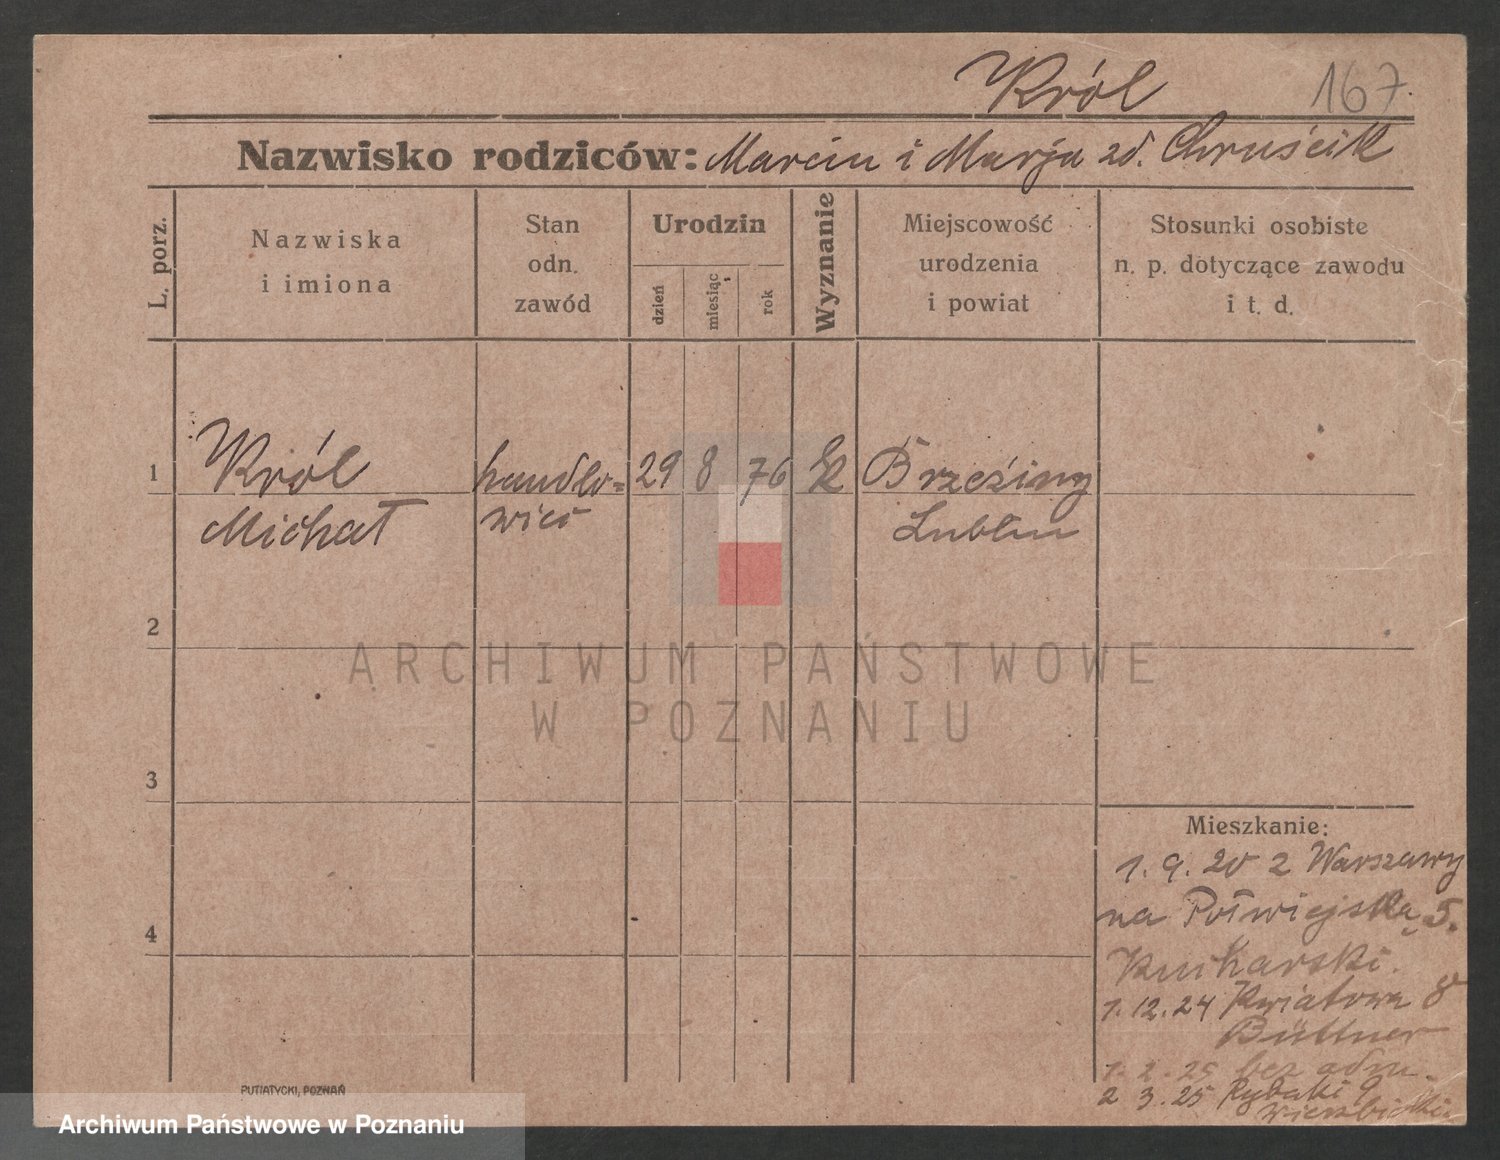 Król
167.
Nazwisko rodziców: Marcin i Marja zd. Chruścik
L. porz.
Nazwiska
i imiona
Stan
odn.
zawód
Urodzin
dzień
miesiąc
rok
Wyznanie
Miejscowość
urodzenia
i powiat
Stosunki osobiste
n. p. dotyczące zawodu
i t. d.
1
Król
Michał
handlo=
wiec
29 8 76
Brzeźiny
Lublin
2
3
4
Mieszkanie:
1. 9. 20 z Warszawy
na Połwiejską 5.
Kucharski.
1. 12. 24 Kwiatowa 8
Büttner
1. 2. 25 bez adru.
2 3. 25 Rybaki 9
PUTIATYCKI, POZNAŃ
ARCHIWUM PAŃSTWOWE
W POZNANIU
Archiwum Państwowe w Poznaniu